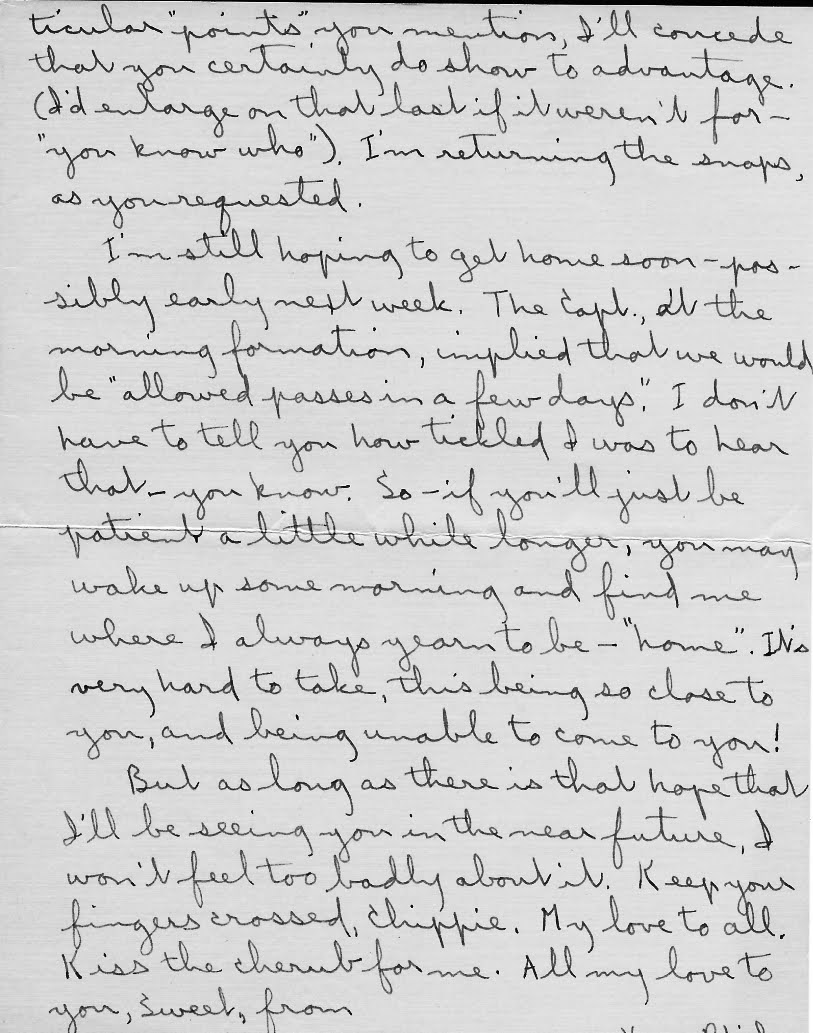 ticular "points" you mention, I'll concede
that you certainly do show to advantage.
(I'd enlarge on that last if it weren't for —
"you know who"). I'm returning the snaps,
as you requested.
I'm still hoping to get home soon - pos-
sibly early next week. The Capt., at the
morning formation, implied that we would
be "allowed passes in a few days". I don't
have to tell you how tickled I was to hear
that - you know. So - if you'll just be
patient a little while longer, you may
wake up some morning and find me
where I always yearn to be - "home". It's
very hard to take, this being so close to
you, and being unable to come to you!
But as long as there is that hope that
I'll be seeing you in the near future, I
won't feel too badly about it. Keep your
fingers crossed, Chippie. My love to all.
Kiss the cherub for me. All my love to
you, Sweet, from